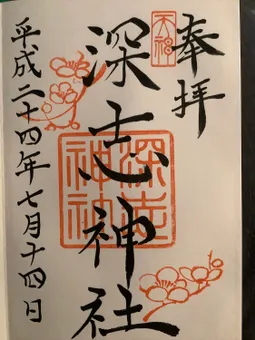 奉拝
天神
深志神社
深志神社
平成二十四年七月十四日